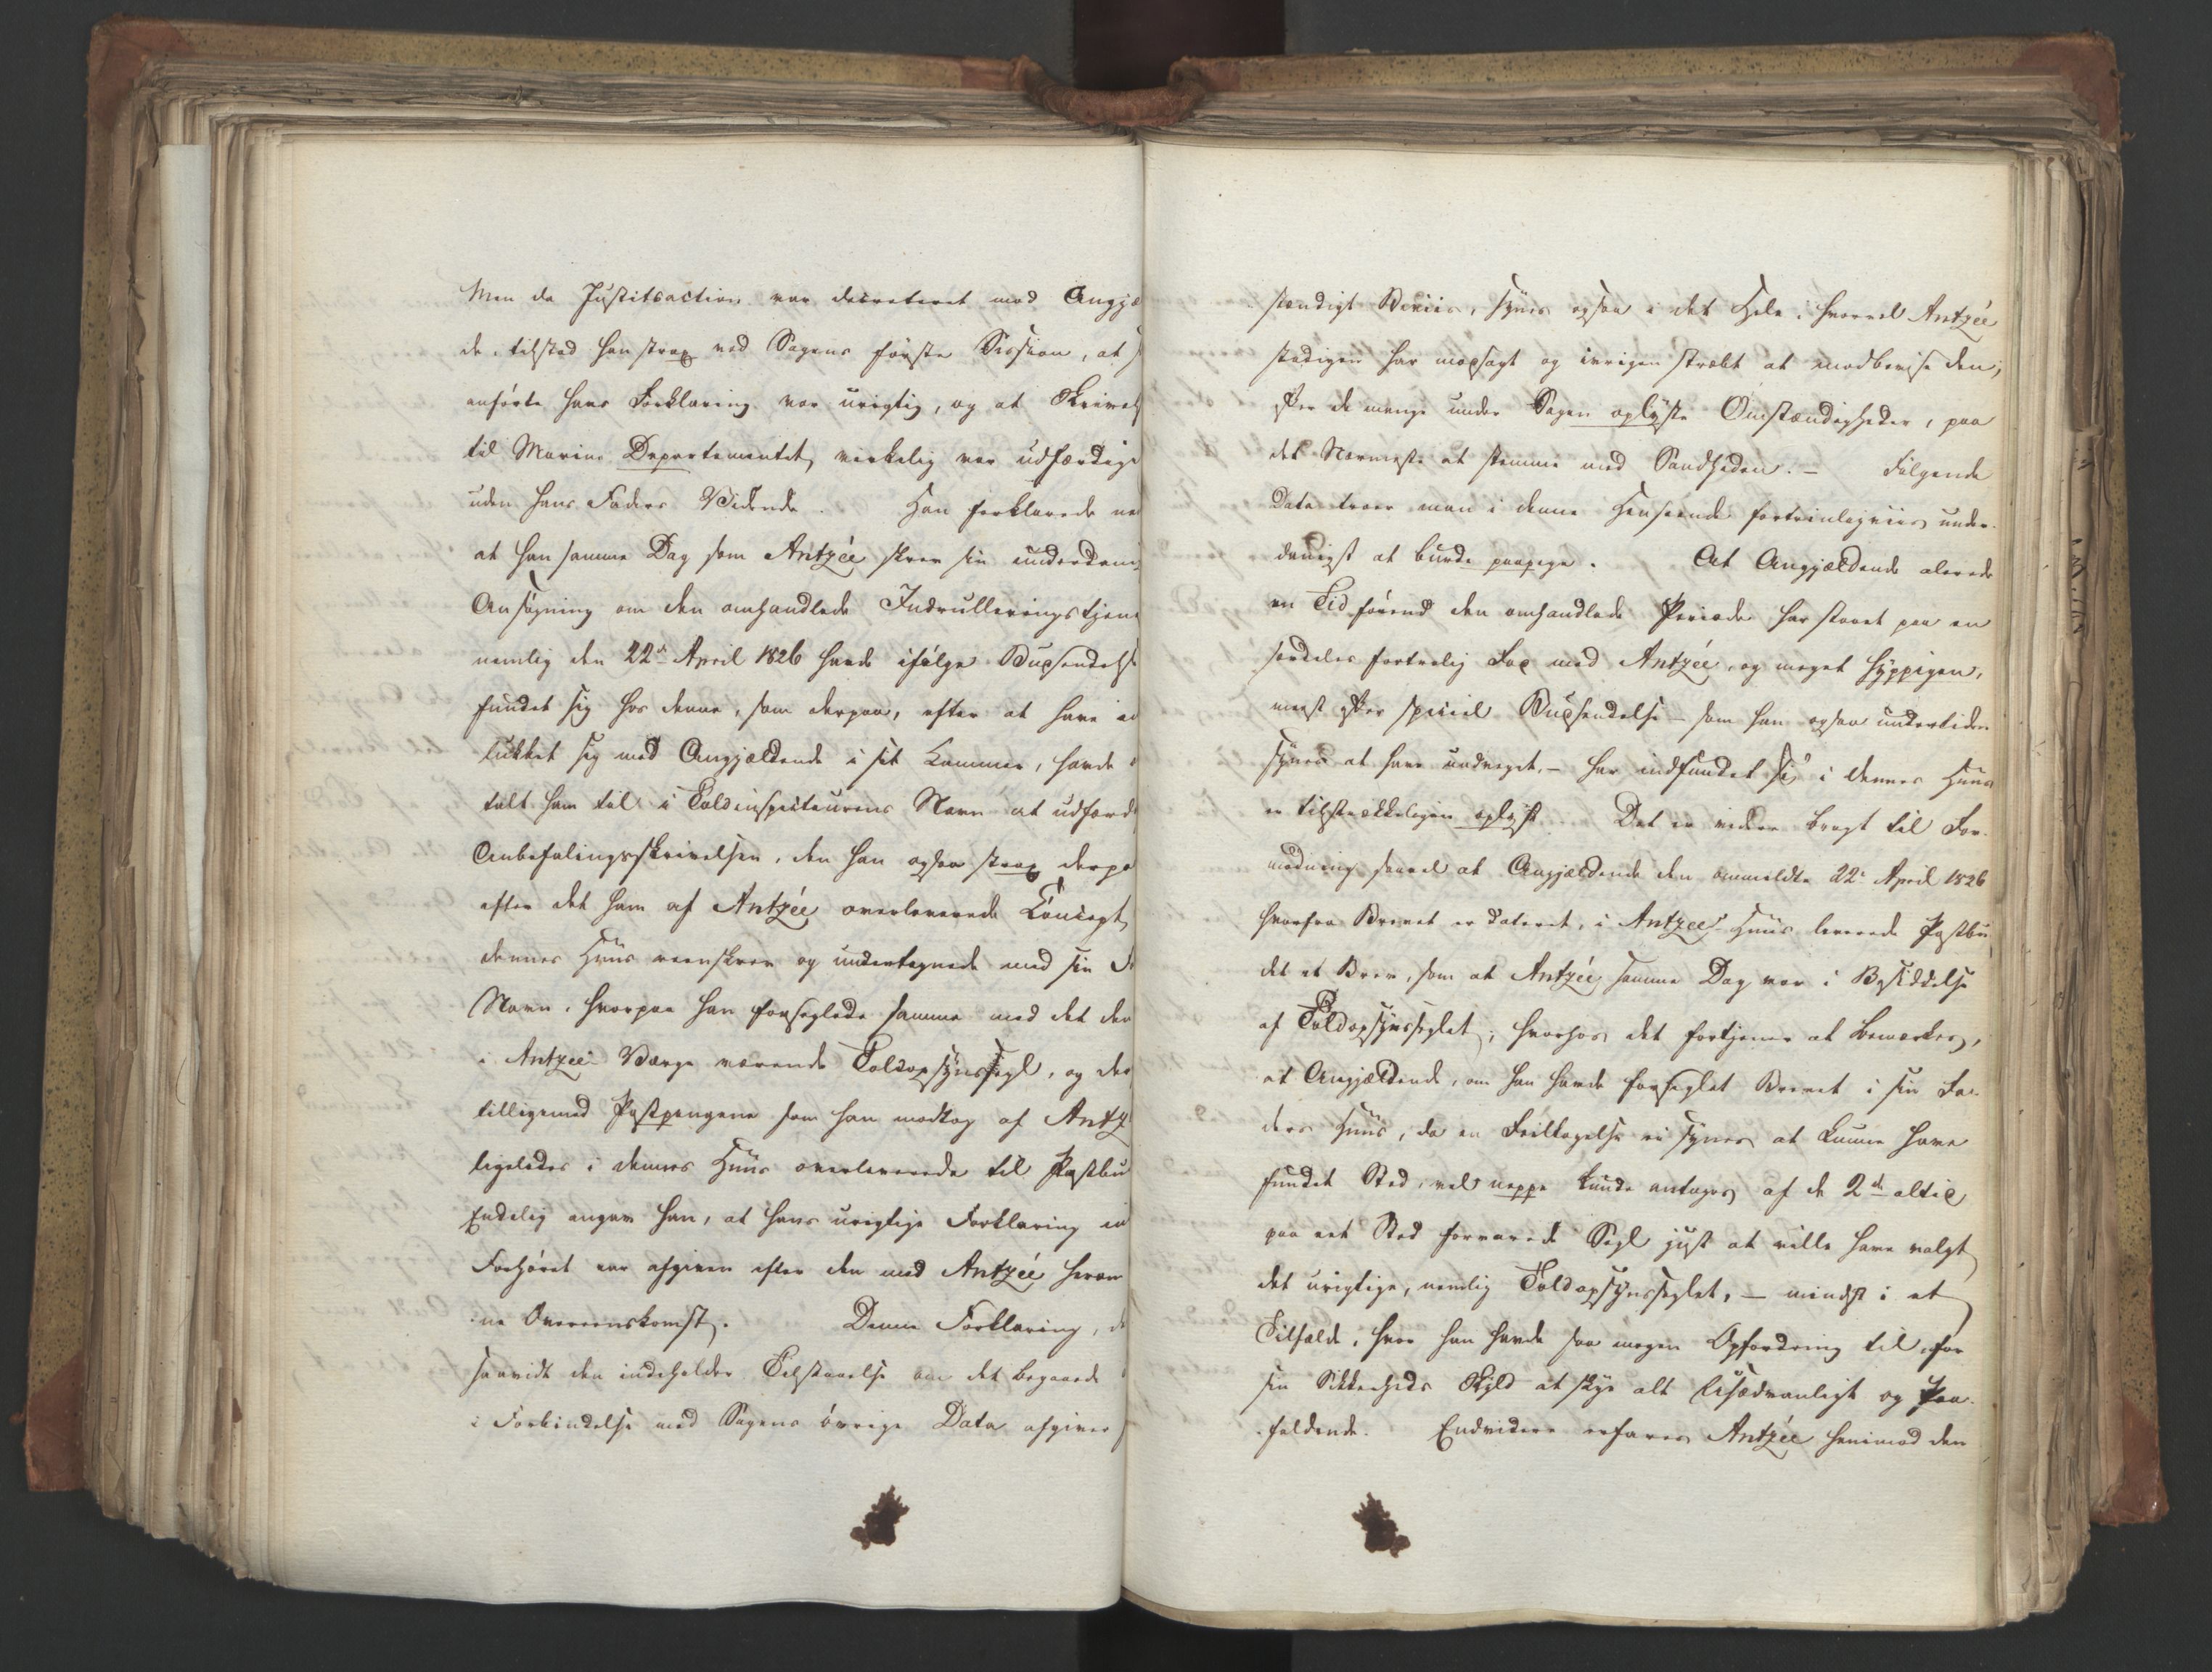 Men da Justitsaction var decreteret mod Angjæ
de, tilstod han strax ved Sagens første Session, at
anførte hans Forklaring var urigtig, og at Skrivels
til Marine Departementet virkelig var udfærdige
uden hans Faders Vidende. Han forklarede ne
at han samme Dag som Antzée skrev sin underdani
Ansøgning om den omhandlede Indrulleringstjene
nemlig den 22de April 1826 havde ifølge Budsendelse
fundet sig hos denne, som derpaa, efter at have in
lukket sig med Angjældende i sit Kammer, havde
talt ham til i Toldinspecteurens Navn at udfærd
Anbefalingsskrivelsen, den han ogsaa strax derpa
efter det ham af Antzée overleverede Concept
dennes Huus reenskrev og undertegnede med sin F
Navn, hvorpaa han forseglede samme med det den
i Antzées Værge værende Toldopsynssegl, og der
tilligemed Postpengene som han modtog af Antz
ligeledes i dennes Huus overleverede til Postbu
Endelig angav han, at hans urigtige Forklaring in
Forhøret var afgiven efter den med Antzée herom
ne Overeenskomst. Denne Forklaring, d
saavidt den indeholder Tilstaaelse om det begaaede
i Forbindelse med Sagens øvrige Data afgiver
stændigt Beviis, synes ogsaa i det Hele, hvorvel Antzée
stadigen har modsagt og ivrigen stræbt at modbevise den,
efter de mange under Sagen oplyste Omstændigheder, paa
det Nærmeste at stemme med Sandheden. – Følgende
Data troer man i denne Henseende fortrinligviis under-
danigst at burde paapege. At Angjældende alerede
en Tid førend den omhandlede Periode har staaet paa en
særdeles fortrolig Fod med Antzée, og meget hyppigen,
meest efter speciel Budsendelse – som han ogsaa undertiden
synes at have undveget, – har indfundet sig i dennes Huus
er tilstrækkeligen oplyst. Det er videre bragt til For-
modning saavel at Angjældende den ommeldte 22de April 1826
hvorfra Brevet er dateret, i Antzées Huus leverede Postbu
det et Brev, som at Antzée samme Dag var i Besiddelse
af Toldopsynsseglet; hvorhos det fortjener at bemærkes,
at Angjældende, om han havde forseglet Brevet i sin Fa-
ders Huus, da en Feiltagelse ei synes at kunne have
fundet Sted, vel neppe kunde antages af de 2de altid
paa eet Sted forvarede Segl just at ville have valgt
det urigtige, nemlig Toldopsynsseglet, – mindst i et
Tilfælde, hvor han havde saa megen Opfordring til, for
sin Sikkerheds Skyld at skye alt Usædvanligt og Paa-
faldende. Endvidere erfarer Antzée henimod den